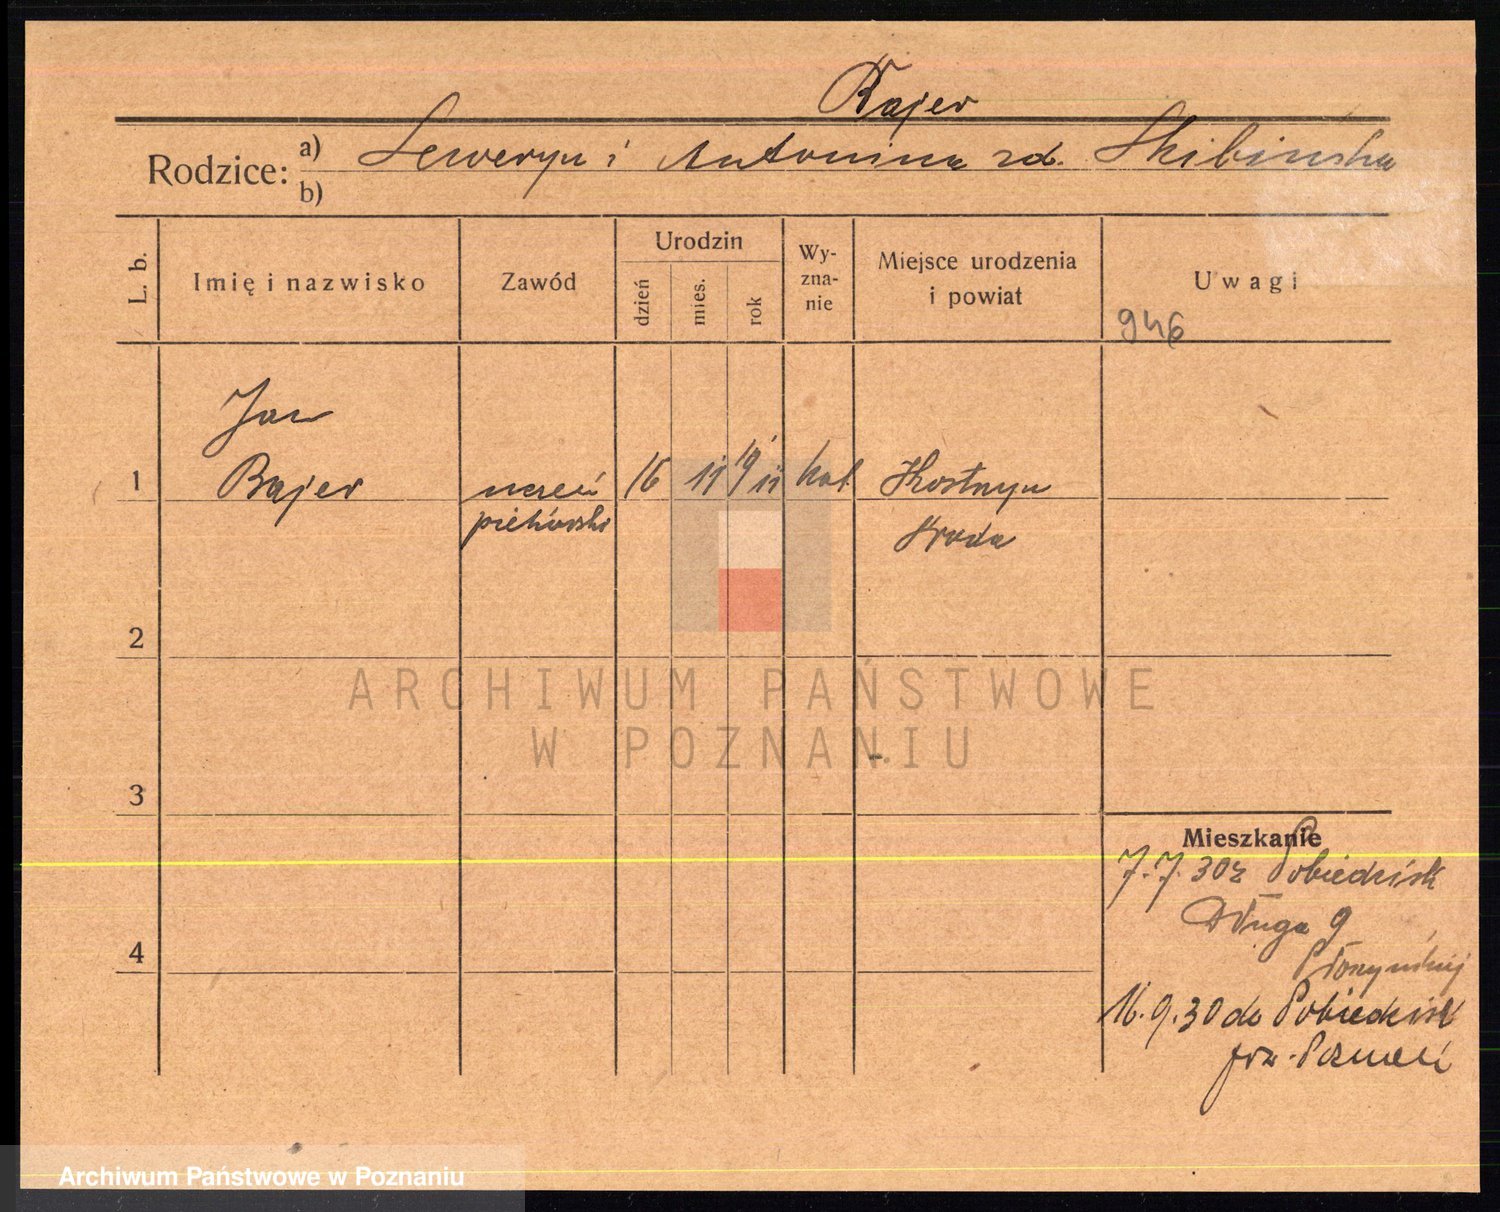 Bajer
Rodzice: a) Seweryn i Antonina zd. Skibińska
b)
L. b.
Imię i nazwisko
Zawód
Urodzin
dzień
mies.
rok
Wy-
zna-
nie
Miejsce urodzenia
i powiat
Uwagi
946
Jan
1 Bajer uczeń 16 11 19 11 kat Kostrzyn
piekarski Środa
2
ARCHIWUM PAŃSTWOWE
W POZNANIU
3
Mieszkanie
7.7.30 z Pobiedzisk
Długa 9
4
16.9.30 do Pobiedzisk
Poznań
Archiwum Państwowe w Poznaniu